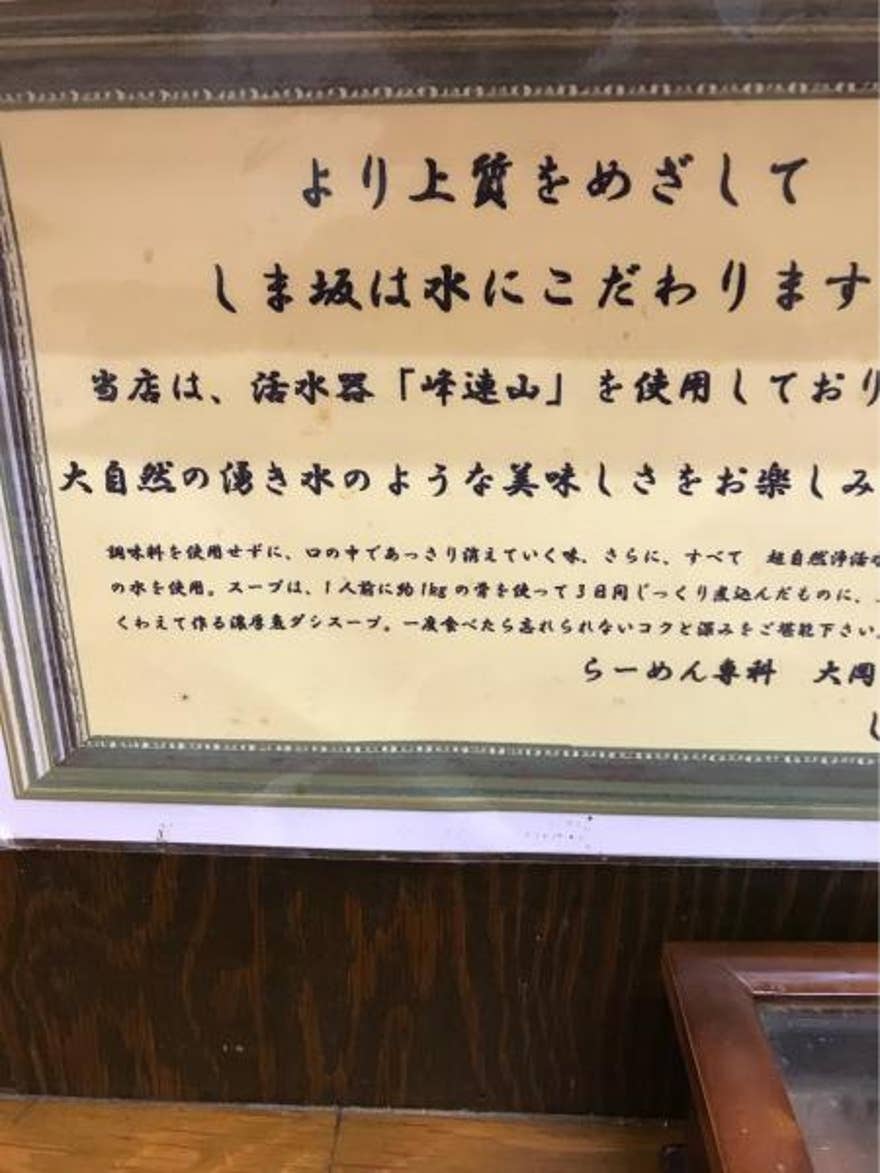 より上質をめざして
しま坂は水にこだわります
当店は、活水器「峰連山」を使用しており
大自然の湧き水のような美味しさをお楽しみ
調味料を使用せずに、口の中であっさり消えていく味、さらに、すべて 超自然浄活水
の水を使用。スープは、1人前に約1kgの骨を使って3日間じっくり煮込んだものに、
くわえて作る濃厚魚ダシスープ。一度食べたら忘れられないコクと深みをご堪能下さい。
らーめん専科 大岡
し